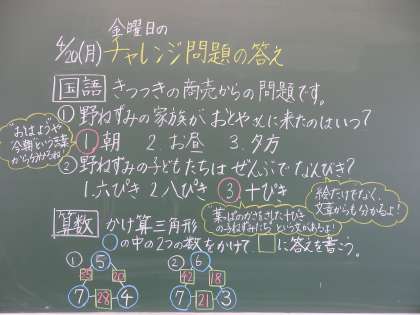 金曜日の
4/20(月) チャレンジ問題の答え
国語 きつつきの商売からの問題です。
① 野ねずみの家族がおとやに来たのはいつ?
おはようや
今朝という言葉
から分かるね
1. 朝 2. お昼 3. 夕方
② 野ねずみの子どもたちはぜんぶでなんびき?
1. 六ぴき 2. 八ぴき 3. 十ぴき
絵だけでなく、
文章からも分かるよ!
葉っぱのかさをさした十ぴき
の子ねずみたちという文があるよ!
算数 かけ算三角形
○の中の2つの数をかけて□に答えを書こう。
① 5
35 20
7 28 4
② 6
42 18
7 21 3